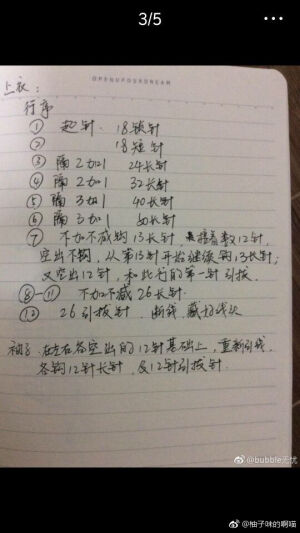 3/5
上衣：
行序
① 起针 18锁针
② 18短针
③ 隔2加1 24长针
④ 隔2加1 32长针
⑤ 隔3加1 40长针
⑥ 隔3加1 50长针
⑦ 不加不减钩13长针，接着数12针，
空出不钩，从第13针开始继续钩13长针；
又空出12针，和此行的第一针引拔
⑧-⑪ 不加不减26长针.
⑫ 26引拔针，断线，藏好线头
袖子：在左右各空出的12针基础上，重新引线，
各钩12针长针，及12针引拔针.
@bubble无忧
@柚子味的啊喵